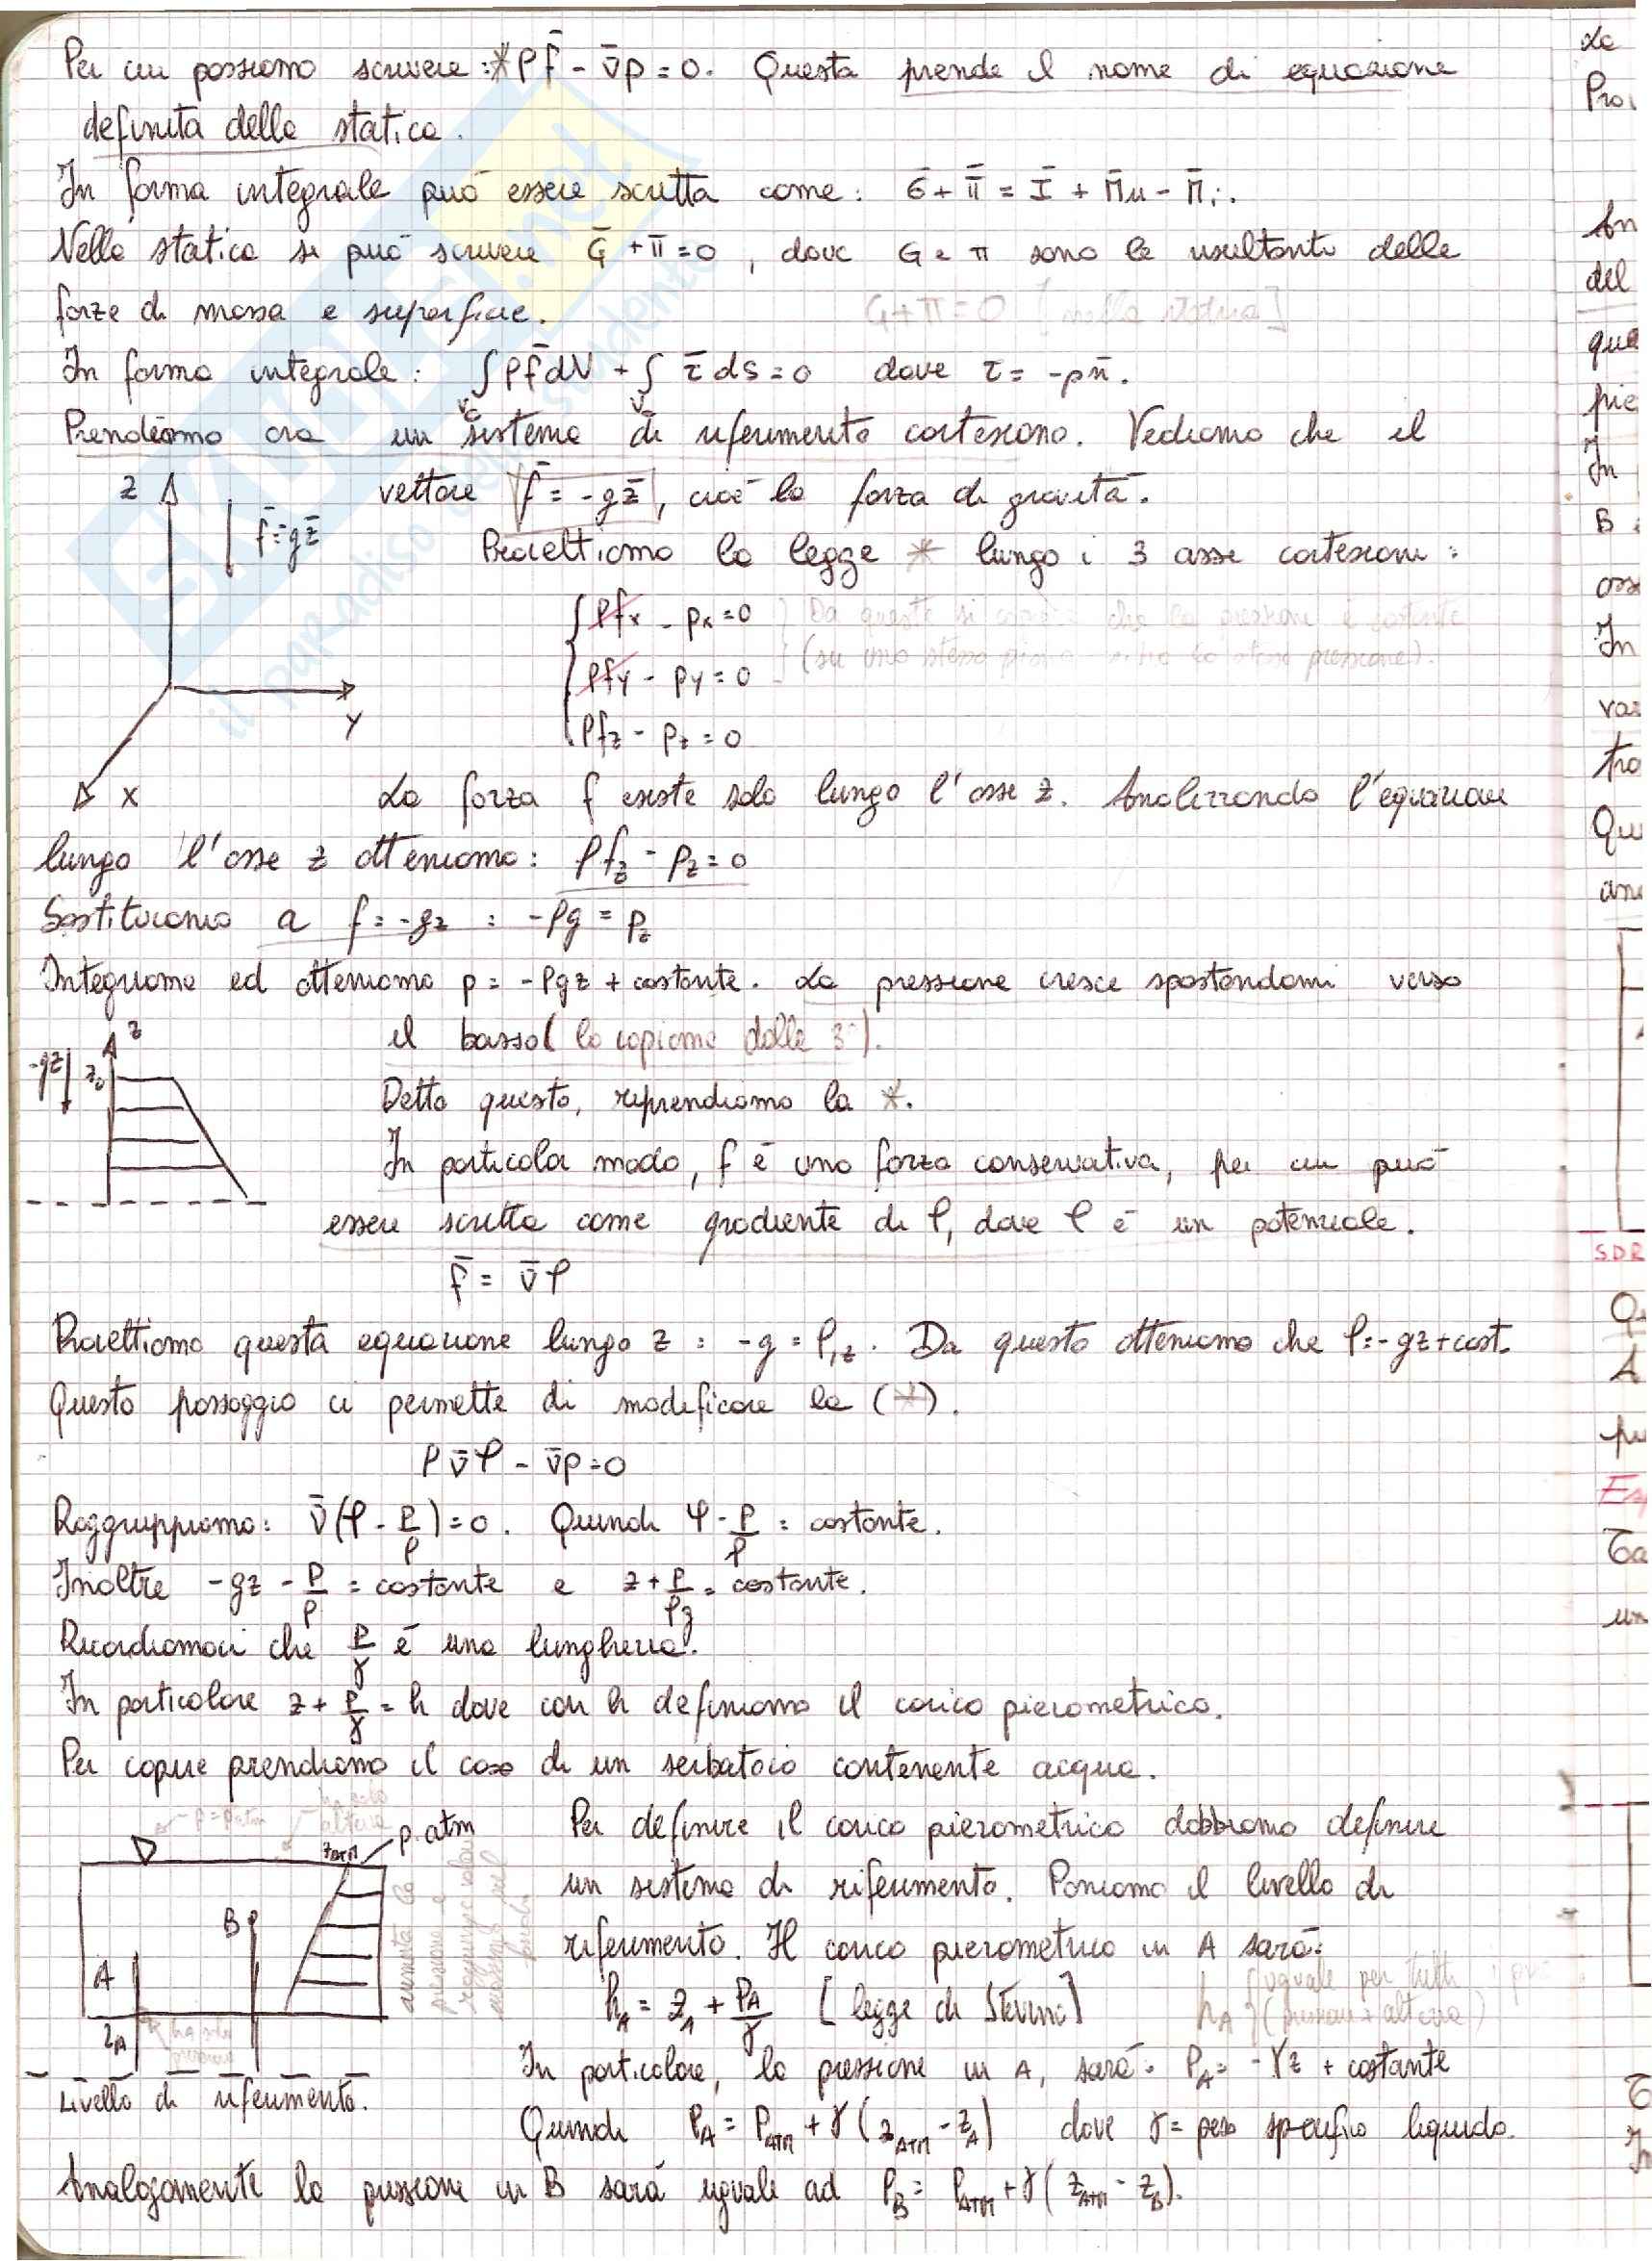 Per cui possiamo scrivere: * ρf̄ - ∇̄p = 0. Questa prende il nome di equazione
definita della statica.
In forma integrale può essere scritta come: Ḡ + Π̄ = Ī + M̄u - M̄i.
Nella statica si può scrivere Ḡ + Π̄ = 0, dove G e Π sono le risultanti delle
forze di massa e superficie.
G + Π = 0 [nella statica]
In forma integrale: ∫ρf̄dV + ∫τ̄ds = 0 dove τ = -pn̄.
Prendiamo ora un sistema di riferimento cartesiano. Vediamo che il
vettore f̄ = -gz̄, cioè la forza di gravità.
Z
f̄ = gz̄
Proiettiamo la legge * lungo i 3 asse cartesiani:
ρfx - px = 0
Da queste si che la pressione è costante
ρfy - py = 0
(su uno stesso la stessa pressione).
ρfz - pz = 0
Y
X
La forza f esiste solo lungo l'asse z. Analizzando l'equazione
lungo l'asse z otteniamo: ρfz - pz = 0
Sostituiamo a f = -gz : -ρg = pz
Integriamo ed otteniamo p = -ρgz + costante. La pressione cresce spostandomi verso
il basso (lo capiamo dalla 3ª).
z
-gz
z₀
Detto questo, riprendiamo la *.
In particolar modo, f è una forza conservativa, per cui può
essere scritta come gradiente di φ, dove φ è un potenziale.
f̄ = ∇̄φ
Proiettiamo questa equazione lungo z : -g = φ,z. Da questo otteniamo che φ = -gz + cost.
Questo passaggio ci permette di modificare la (*).
ρ∇̄φ - ∇̄p = 0
Raggruppiamo: ∇̄(φ - p/ρ) = 0. Quindi φ - p/ρ = costante.
Inoltre -gz - p/ρ = costante e z + p/ρg = costante.
Ricordiamoci che p/γ è una lunghezza.
In particolare z + p/γ = h dove con h definiamo il carico piezometrico.
Per capire prendiamo il caso di un serbatoio contenente acqua.
p = patm
ha solo
altezza
zATM
p. atm
B
A
zA
ha solo
pressione
aumenta la
pressione e
Livello di riferimento.
Per definire il carico piezometrico dobbiamo definire
un sistema di riferimento. Poniamo il livello di
riferimento. Il carico piezometrico in A sarà:
hA = zA + PA/γ [legge di Stevino]
hA uguale per tutti
(pressione + altezza)
In particolare, la pressione in A, sarà: PA = -γz + costante
Quindi PA = PATM + γ(zATM - zA) dove γ = peso specifico liquido.
Analogamente la pressione in B sarà uguale ad PB = PATM + γ(zATM - zB).
La
del
In
B
In
SDR